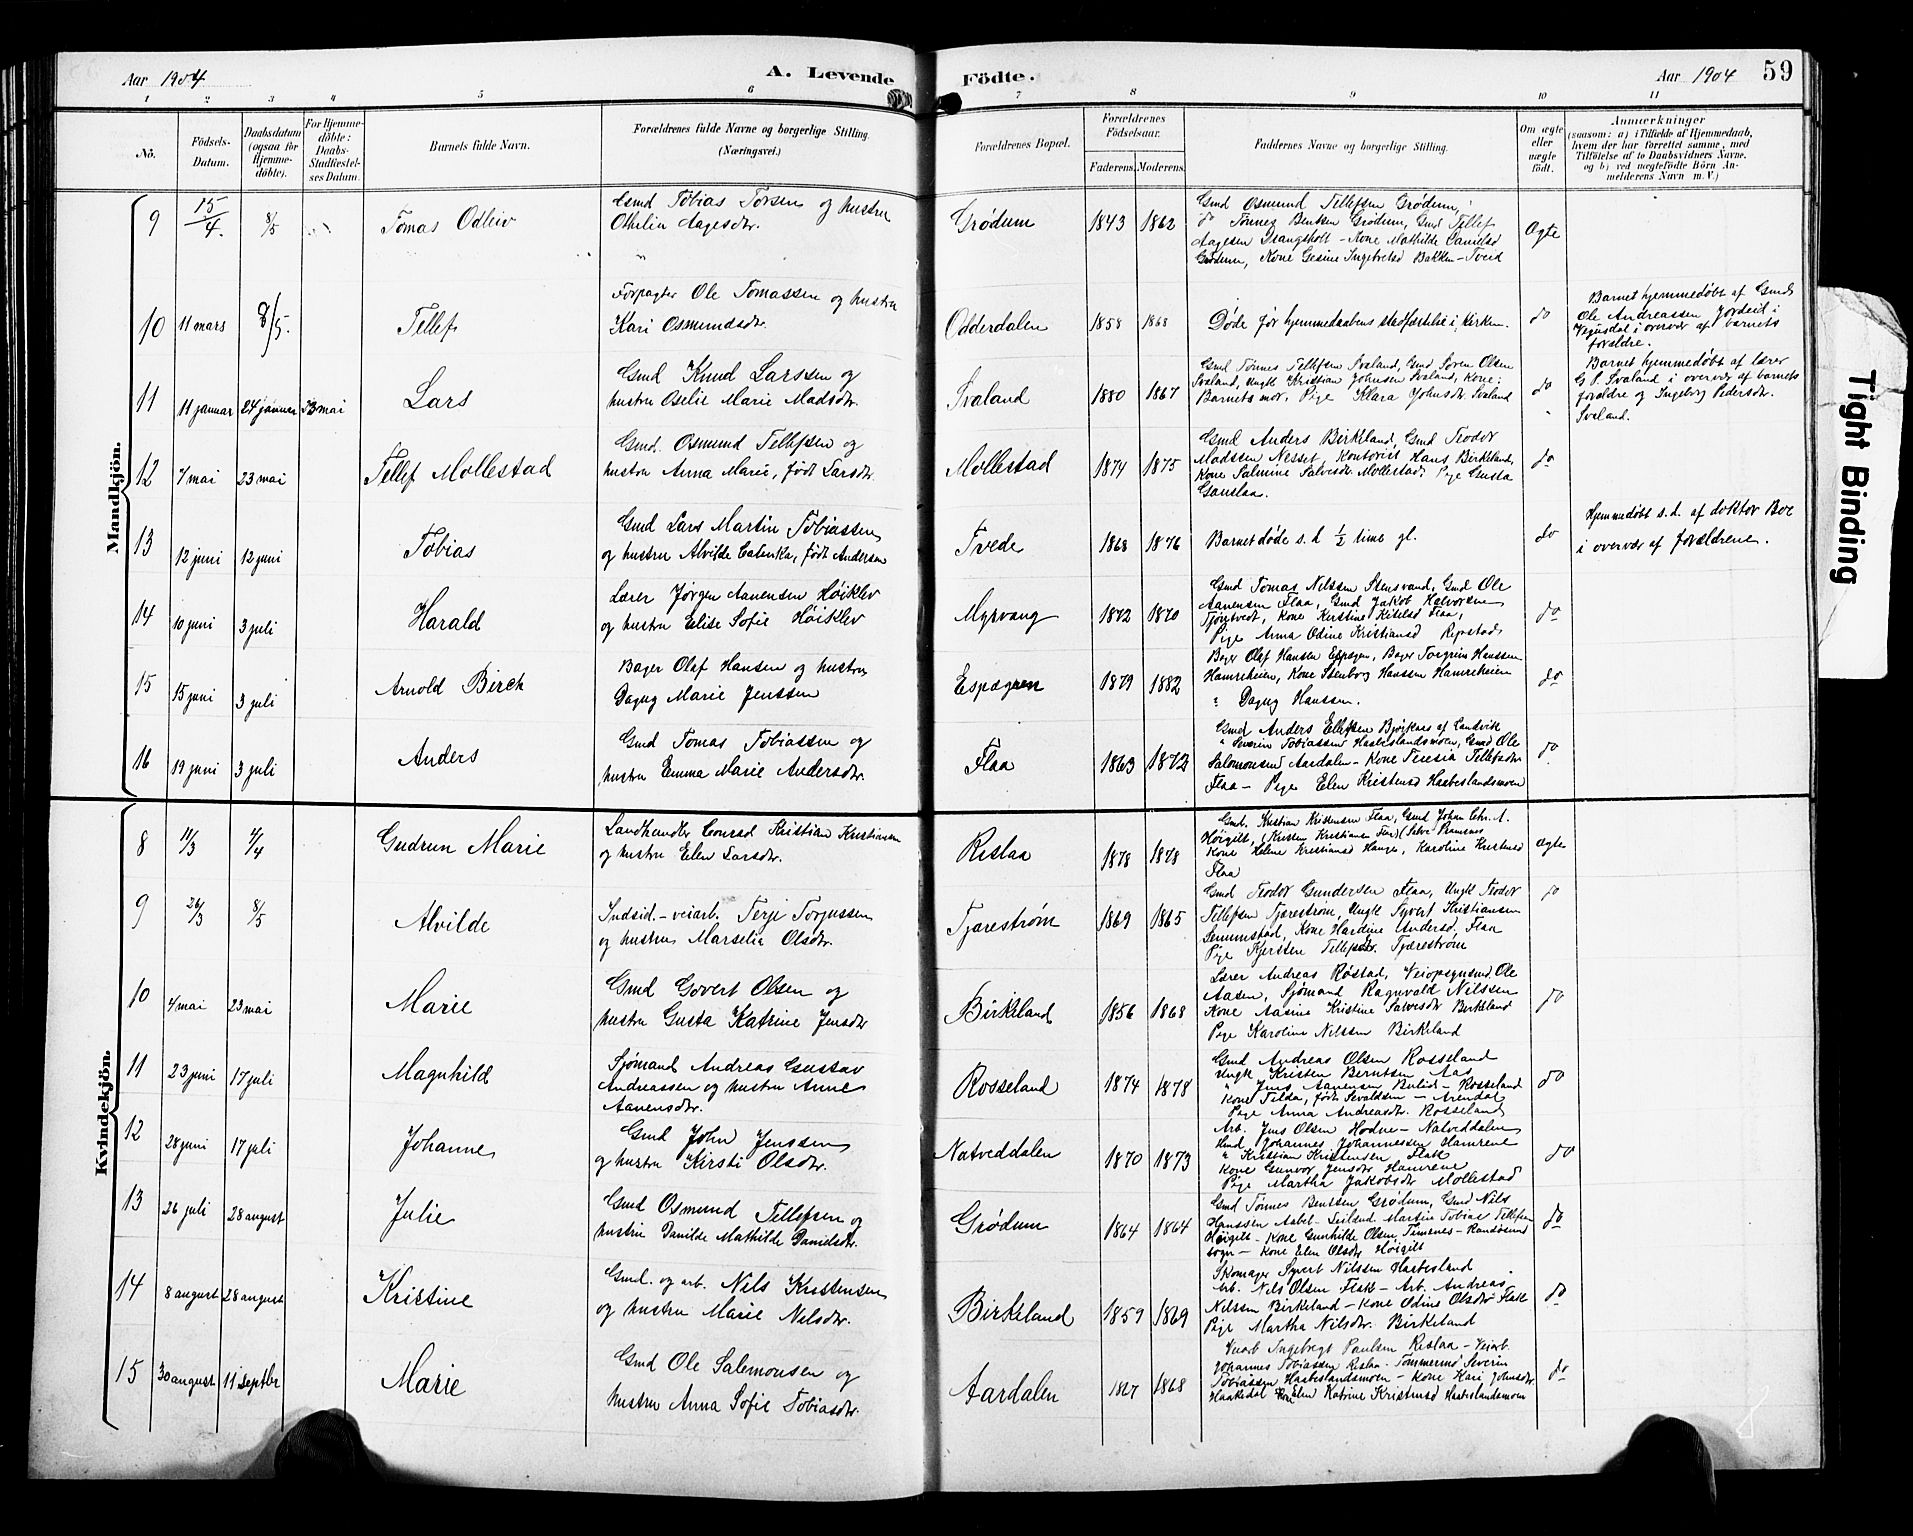 Aar 1904
A. Levende
Födte.
Aar 1904
59
1 2 3 4 5 6 7 8 9 10 11
No.
Födsels-
Datum.
Daabsdatum
(ogsaa for
Hjemme-
döbte).
For Hjemme-
döbte:
Daabs-
Stadfæstel-
ses Datum.
Barnets fulde Navn.
Forældrenes fulde Navne og borgerlige Stilling.
(Næringsvei.)
Forældrenes Bopæl.
Forældrenes
Födselsaar.
Faderens. Moderens.
Faddernes Navne og borgerlige Stilling.
Om ægte
eller
uægte
födt.
Anmærkninger
(saasom: a) i Tilfælde af Hjemmedaab,
hvem der har forrettet samme, med
Tilföielse af to Daabsvidners Navne,
og b) ved uægtefödte Börn An-
melderens Navn m. V.)
Mandkjön.
9
15/4.
8/5
Tomas Odleiv
Gmd Tobias Torsen og hustru
Othelia Aagesdtr.
Grødum
1843 1862
Gmd Osmund Tellefsen Grødum,
do Tønnes Bentsen Grødum, Gmd Tellef
Aagesen Drangsholt - Kone Mathilde Danielsd
Grødum, Kone Gesine Ingebretsd Bakken - Tveid
Ægte
10
11 mars
8/5.
Tellef
Forpagter Ole Tomassen og hustru
Kari Osmundsdtr.
Odderdalen
1858 1868
Døde før hjemmedaabens stadfæstelse i kirken.
do
Barnet hjemmedøbt af Gmd
Ole Andreassen Jordeid i
Vegusdal i overvær af barnets
forældre.
11
11 januar
24 januar
23 mai
Lars
Gmd Knud Larssen og
hustru Oselie Marie Madsdtr.
Svaland
1880 1867
Gmd Tønnes Tellefsen Svaland, Gmd Søren Olsen
Svaland, Ungk Kristian Johnsen Svaland, Kone:
Barnets mor, Pige Klara Johnsdtr. Svaland
do
Barnet hjemmedøbt af lærer
G P. Svaland i overvær af barnets
forældre og Ingeborg Pedersdtr.
Svaland.
12
7 mai
23 mai
Tellef Mollestad
Gmd. Osmund Tellefsen og
hustru Anna Marie, født Larsdtr.
Mollestad
1874 1875
Gmd Anders Birkeland, Gmd Teodor
Madssen Nesset, Kontorist Hans Birkeland,
Kone Salmine Salvesdtr. Mollestad, Pige Gusta
Gauslaa.
do
13
12 juni
12 juni
Tobias
Gmd Lars Martin Tobiassen
og hustru Alvilde Catinka, født Andersen
Tvede
1868 1876
Barnet døde s. d. ½ time gl.
do
Hjemmedøbt s. d. af doktor Boe
i overvær af forældrene.
14
10 juni
3 juli
Harald
Lærer Jørgen Aanensen Høiklev
og hustru Elise Sofie Høiklev
Myrvang
1872 1870
Gmd Tomas Nilssen Stensvand, Gmd Ole
Aanensen Flaa, Gmd Jakob Halvorsen
Tjøntvedt, Kone Kirstine Kittelsd Flaa,
Pige Anna Odine Kristiansd Repstad
do
15
15 juni
3 juli
Arnold Birch
Bager Olaf Hansen og hustru
Dagny Marie Jenssen
Espøgren
1879 1882
Bager Olaf Hansen Espøgren, Bager Torgrim Hanssen
Hamreheien, Kone Stenborg Hanssen Hamreheien
" Dagny Hanssen.
do
16
19 juni
3 juli
Anders
Gmd Tomas Tobiassen og
hustru Emma Marie Andersdtr.
Flaa
1863 1872
Gmd Anders Ellefsen Bjørknes af Landvik
" Severin Tobiassen Haabeslandsmoen, Gmd Ole
Salomonsen Aardalen - Kone Teresia Tellefsdtr
Flaa - Pige Elen Kristensd Haabeslandsmoen
do
Kvindekjön.
8
11/3
4/4
Gudrun Marie
Landhandler Conrad Kristian Kristiansen
og hustru Elen Larsdtr.
Rislaa
1878 1878
Gmd. Kristian Kristensen Flaa, Gmd Johan Chr. A.
Høigilt,
Kone Helene Kristiansd Hauge, Karoline Kristensd
Flaa
Ægte
9
26/3
8/5
Alvilde
Indsid. - veiarb. Terje Torjussen
og hustru Marselie Olsdtr.
Tjærestrøm
1869 1865
Gmd Teodor Gundersen Flaa, Ungk Teodor
Tellefsen Tjærestrøm, Ungk Syvert Kristiansen
Senumstad, Kone Hardine Andersd. Flaa
Pige Kjersten Tellefsdtr. Tjærestrøm
do
10
4 mai
23 mai
Marie
Gmd Govert Olsen og
hustru Gusta Katrine Jensdtr
Birkeland
1856 1868
Lærer Andreas Røstad, Veiopsynsmd. Ole
Aasen, Sjømand Ragnvald Nilssen
Kone Aasine Kristine Salvesdtr Birkeland
Pige Karoline Nilssen Birkeland
do
11
23 juni
17 juli
Magnhild
Sjømand Andreas Gustav
Andreassen og hustru Anne
Aanensdtr.
Rosseland
1874 1878
Gmd Andreas Olsen Rosseland
Ungk Kristen Berntsen Aas
" Jens Aanensen Bulid - Rosseland
Kone Tilda, født Sevaldsen - Arendal
Pige Anna Andreasdtr. Rosseland
do
12
28 juni
17 juli
Johanne
Gmd John Jenssen
og hustru Kirsti Olsdtr.
Natveddalen
1870 1873
Arb. Jens Olsen Hodne - Natveddalen
Gmd Johannes Johannessen Hamrene
" Kristian Kristensen, Flakk
Kone Gunvor Jensdtr Hamrene
Pige Martha Jakobsdtr Mollestad
do
13
26 juli
28 august
Julie
Gmd Osmund Tellefsen og
hustru Danilde Mathilde Danielsdtr.
Grødum
1864 1864
Gmd Tønnes Bentsen Grødum, Gmd Nils
Hanssen Aabel- Martin Tobias Tellefsen
Høigilt - Kone Gunhilde Olsen, Timenes - Randøsund
sogn - Kone Elen Olsdtr Høigilt
do
14
8 august
28 august
Kristine
Gmd. og arb. Nils Kristensen
og hustru Marie Nilsdtr.
Birkeland
1859 1869
Skomager Syvert Nilssen Haabesland
Arb. Nils Olsen Flakk - Arb. Andreas
Nilssen Birkeland - Kone Odine Olsdtr Flakk
Pige Martha Nilsdtr. Birkeland
do
15
30 august
11 septbr
Marie
Gmd Ole Salemonsen og
hustru Anna Sofie Tobiasdtr.
Aardalen
1867 1868
Veiarb Ingebregt Paulsen Rislaa - Veiarb.
Johannes Tobiassen Rislaa - Tømmermd Severin
Tobiassen Haabeslandsmoen - Kone Kari Johnsdtr
Haakedal Kone Elen Katrine Kristensd Haabeslandsmoen
do
Tight Binding